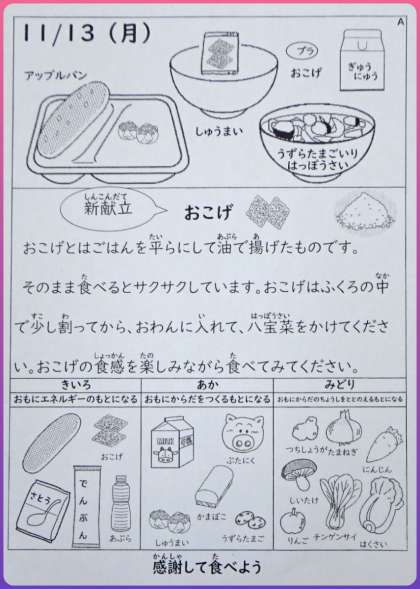 11/13（月）
A
アップルパン
しゅうまい
プラ
おこげ
ぎゅう
にゅう
うずらたまごいり
はっぽうさい
新献立
しんこんだて
おこげ
おこげとはごはんを平らにして油で揚げたものです。
たい あぶら あ
そのまま食べるとサクサクしています。おこげはふくろの中
た なか
で少し割ってから、おわんに入れて、八宝菜をかけてくださ
すこ わ い はっぽうさい
い。おこげの食感を楽しみながら食べてみてください。
しょっかん たの た
きいろ
おもにエネルギーのもとになる
おこげ
さとう
でんぷん
あぶら
あか
おもにからだをつくるもとになる
ぶたにく
かまぼこ
しゅうまい
うずらたまご
みどり
おもにからだのちょうしをととのえるもとになる
つちしょうが
たまねぎ
にんじん
しいたけ
りんご
チンゲンサイ
はくさい
感謝して食べよう
かんしゃ た